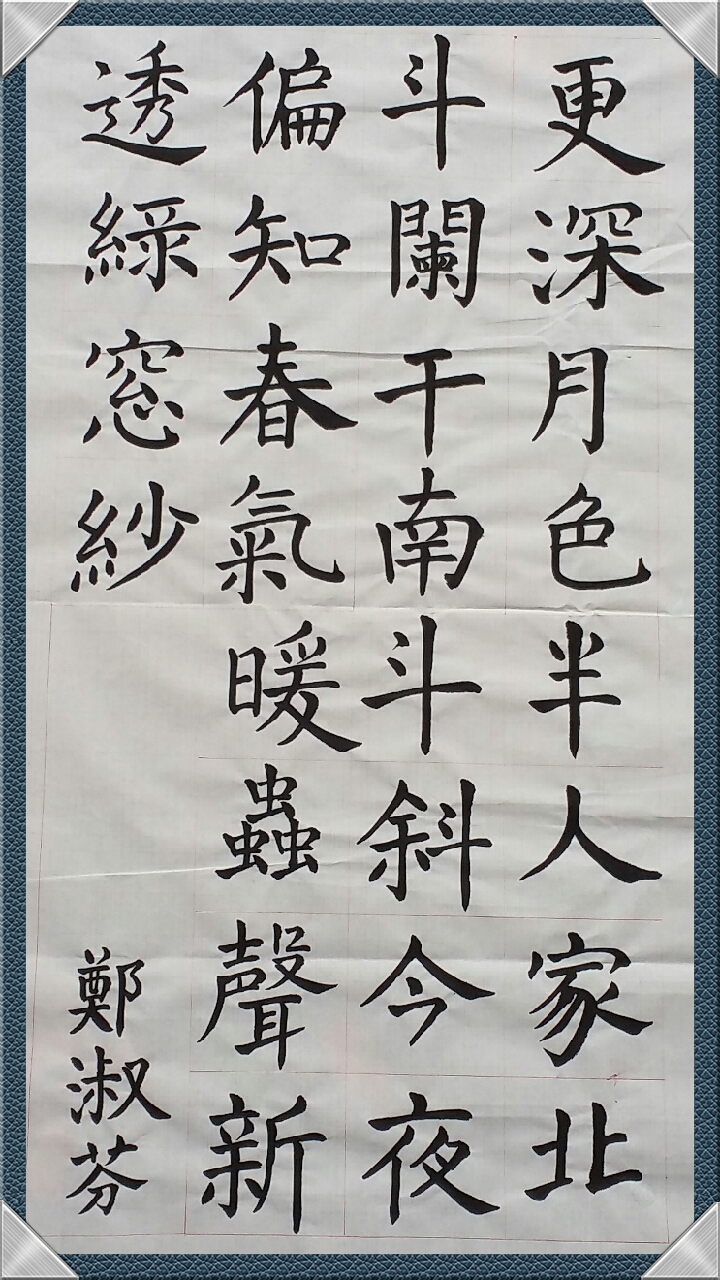 更深月色半人家北
斗闌干南斗斜今夜
偏知春氣暖蟲聲新
透綠窓紗
鄭淑芬